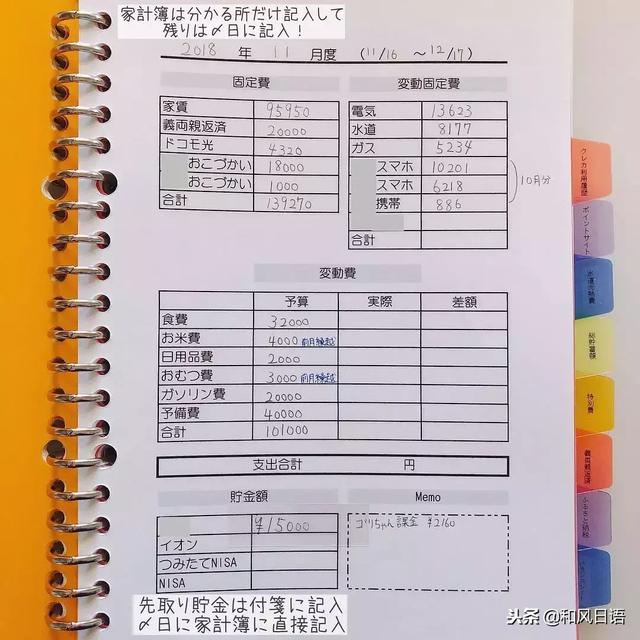 家計簿は分かる所だけ記入して
残りは〆日に記入！
2018 年 11 月度 (11/16 ～ 12/17)
固定費
家賃 95950
義両親返済 20000
ドコモ光 4320
おこづかい 18000
おこづかい 1000
合計 139270
変動固定費
電気 13623
水道 8177
ガス 5234
スマホ 10201
スマホ 6218
携帯 886
10月分
合計
変動費
予算 実際 差額
食費 32000
お米費 4000 前月繰越
日用品費 2000
おむつ費 3000 前月繰越
ガソリン費 20000
予備費 40000
合計 101000
支出合計 円
貯金額
¥15000
イオン
つみたてNISA
NISA
Memo
ゴリちゃん課金 ¥2160
先取り貯金は付箋に記入
〆日に家計簿に直接記入
クレカ利用履歴
ポイントサイト
水道光熱費
総貯蓄額
特別費
義両親返済
ふるさと納税
头条 @和风日语